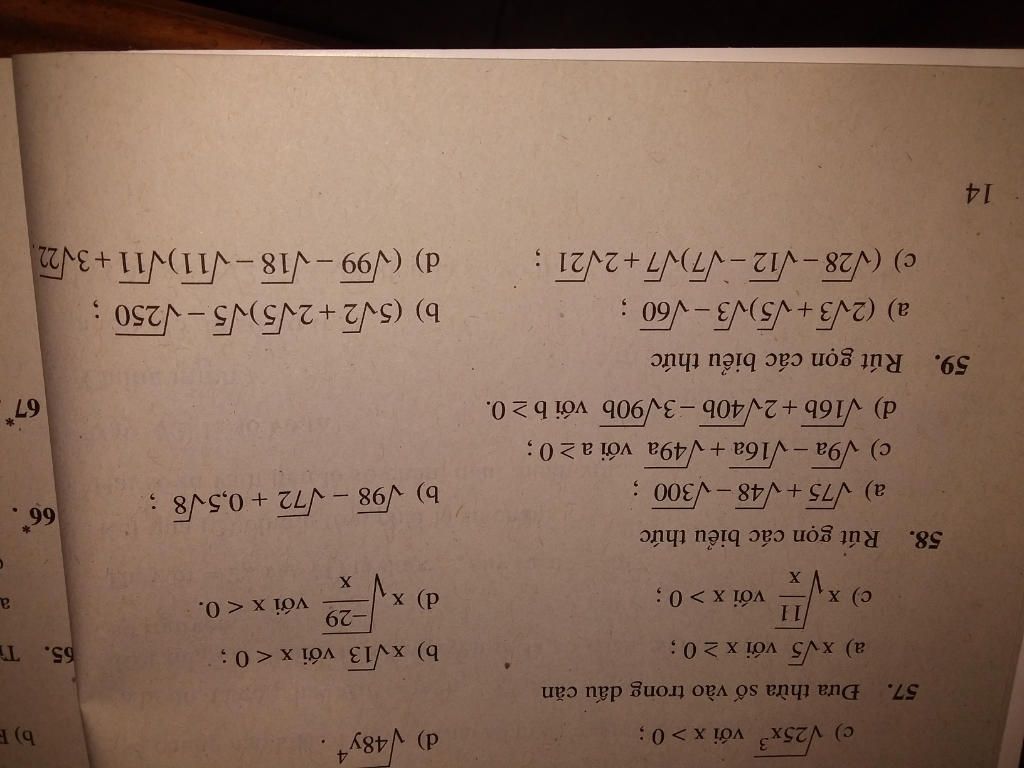 c) √25x³ với x > 0 ; d) √48y⁴ .
57. Đưa thừa số vào trong dấu căn
a) x√5 với x ≥ 0 ; b) x√13 với x < 0 ;
c) x√(11/x) với x > 0 ; d) x√(−29/x) với x < 0.
58. Rút gọn các biểu thức
a) √75 + √48 − √300 ; b) √98 − √72 + 0,5√8 ;
c) √9a − √16a + √49a với a ≥ 0 ;
d) √16b + 2√40b − 3√90b với b ≥ 0.
59. Rút gọn các biểu thức
a) (2√3 + √5)√3 − √60 ; b) (5√2 + 2√5)√5 − √250 ;
c) (√28 − √12 − √7)√7 + 2√21 ; d) (√99 − √18 − √11)√11 + 3√22.
14
b)
65.
a
66*.
67*